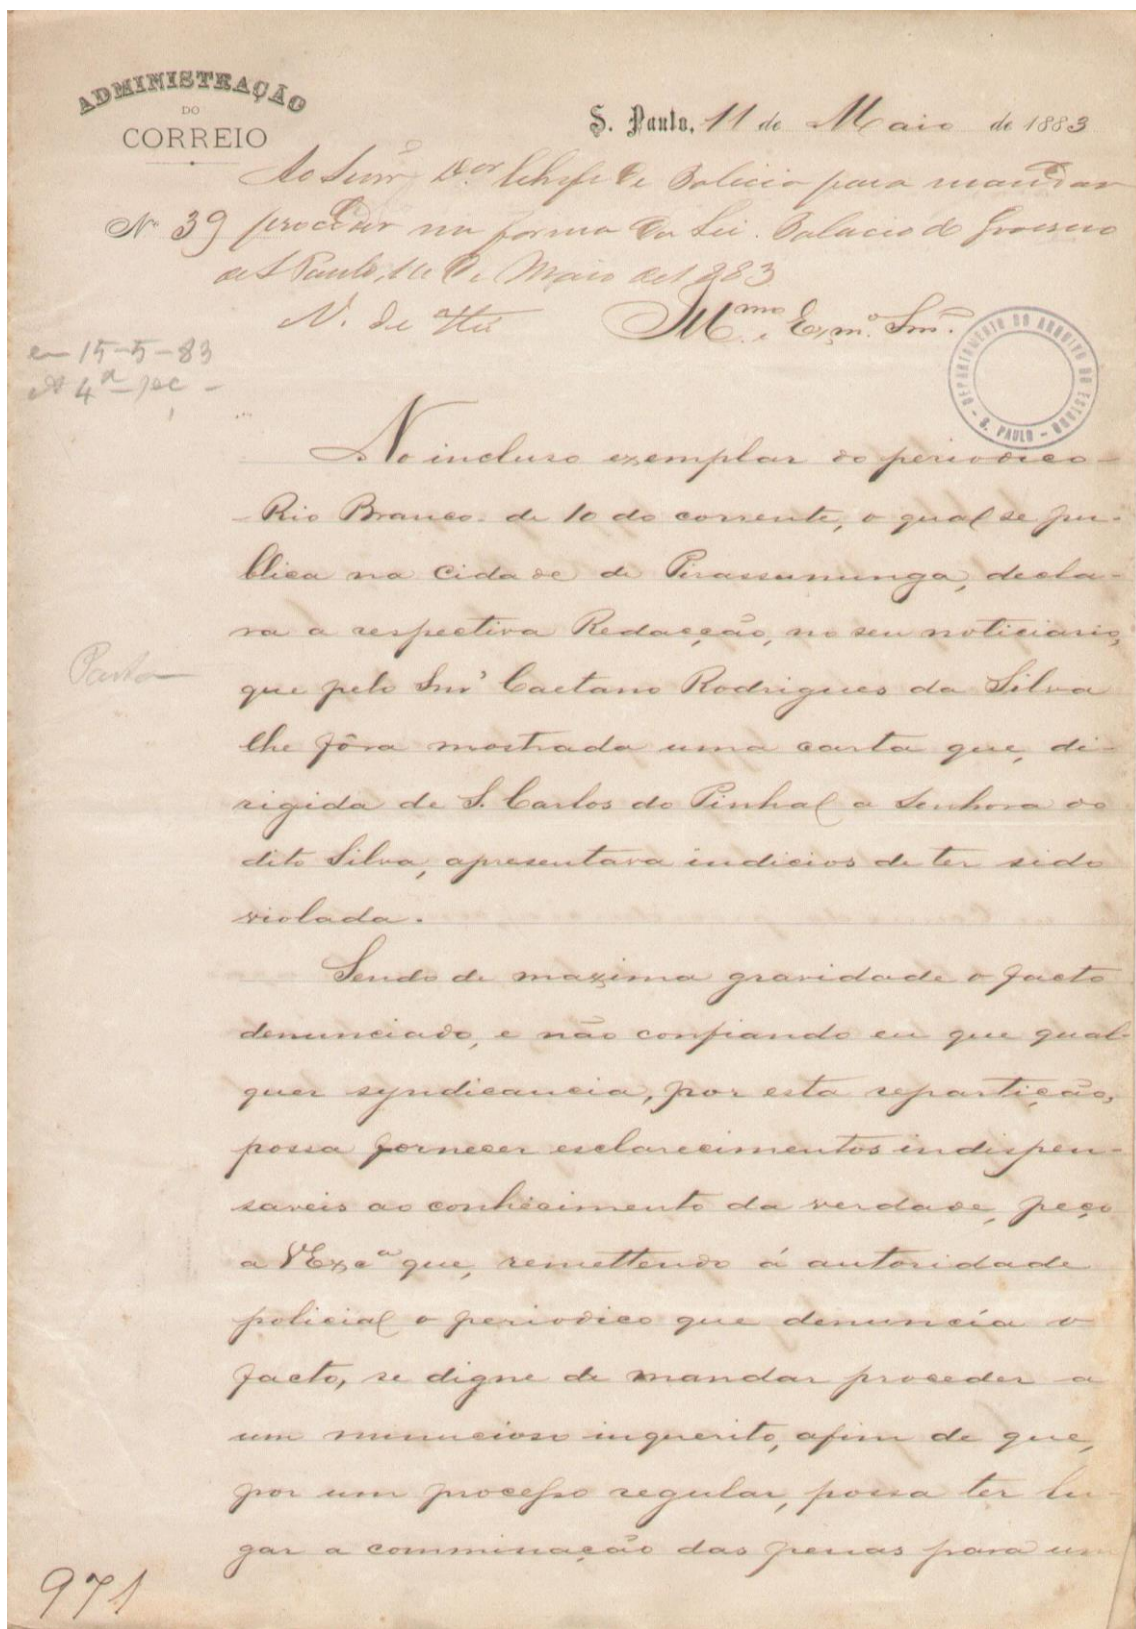 ADMINISTRAÇÃO
DO
CORREIO
S. Paulo, 11 de Maio de 1883
Ao Snr. Dor. Chefe de Policia para mandar
No 39 proceder na forma da Lei. Palacio do Governo
de S. Paulo, de Maio de 1883
N. de Itú
Illmo. e Exmo. Snr.
DEPARTAMENTO DO ARQUIVO DO ESTADO - S. PAULO -
em 15-5-83
A 4a sec
No incluso exemplar do periodico
Rio Branco de 10 do corrente, o qual se pu-
blica na cidade de Pirassununga, decla-
ra a respectiva Redacção, no seu noticiario,
que pelo Snr Caetano Rodrigues da Silva
lhe fôra mostrada uma carta que, di-
rigida de S. Carlos do Pinhal a Senhora do
dito Silva, apresentava indicios de ter sido
violada.
Sendo de maxima gravidade o facto
denunciado, e não confiando eu que qual-
quer syndicancia, por esta repartição,
possa fornecer esclarecimentos indispen-
saveis ao conhecimento da verdade, peço
a VExca que, remettendo á autoridade
policial o periodico que denuncía o
facto, se digne de mandar proceder a
um minucioso inquerito, afim de que,
por um processo regular, possa ter lu-
gar a comminação das penas para um
971